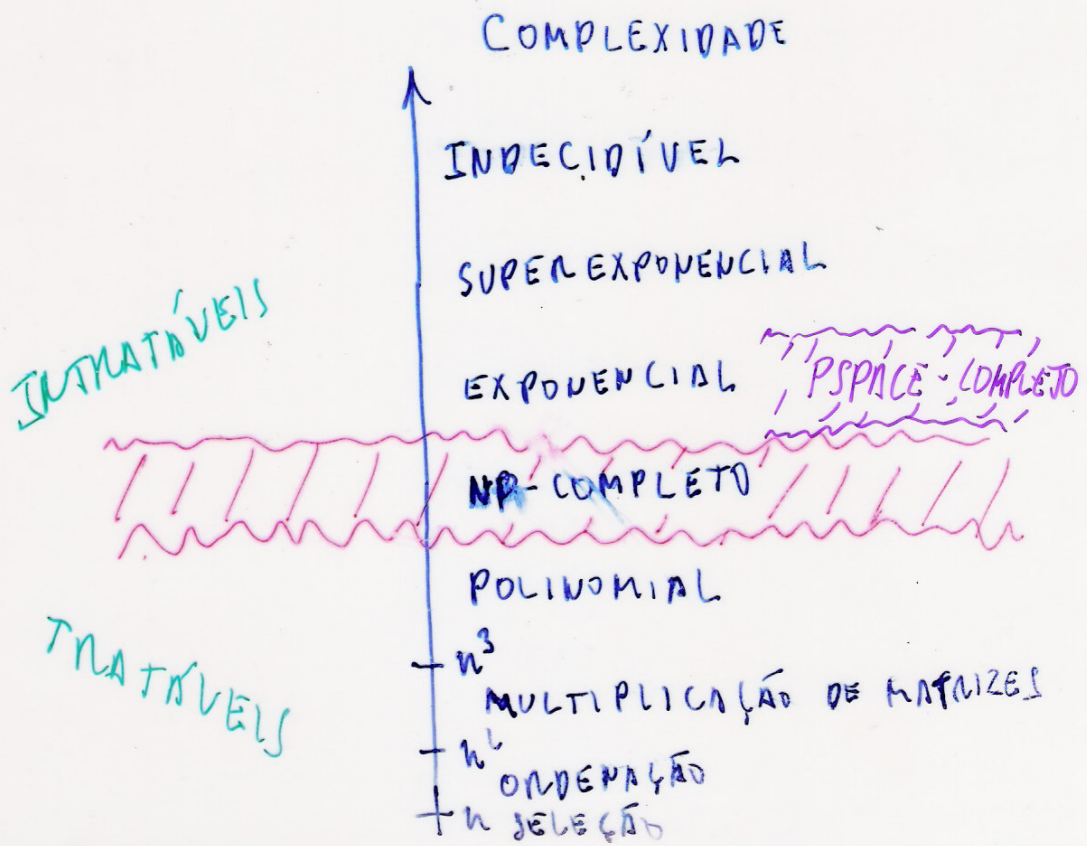 COMPLEXIDADE
INDECIDÍVEL
SUPEREXPONENCIAL
INTRATÁVEIS
EXPONENCIAL
PSPACE-COMPLETO
NP-COMPLETO
POLINOMIAL
TRATÁVEIS
n³
MULTIPLICAÇÃO DE MATRIZES
n²
ORDENAÇÃO
n SELEÇÃO